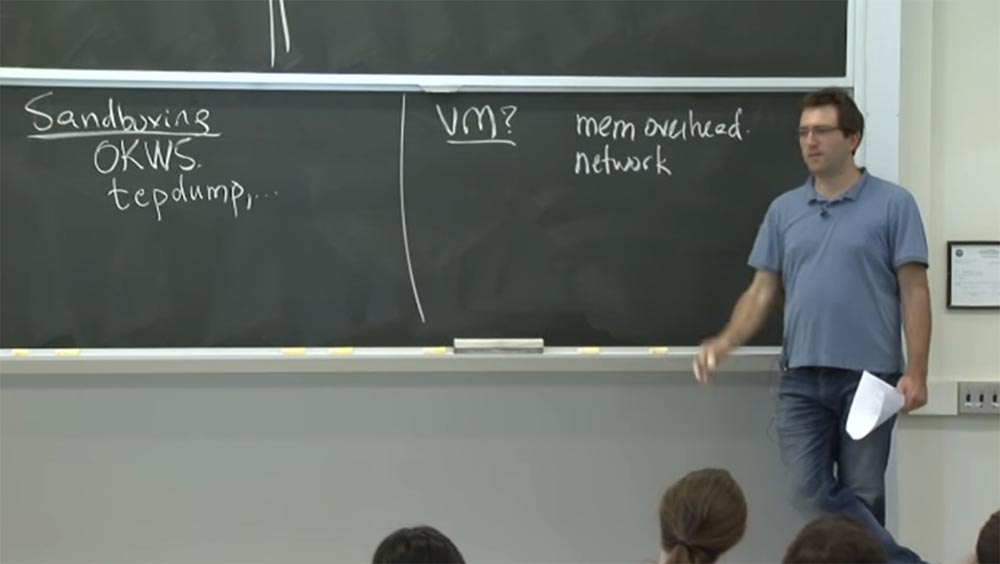 Sandboxing
OKWS.
tcpdump,...
VM?
mem overhead.
network